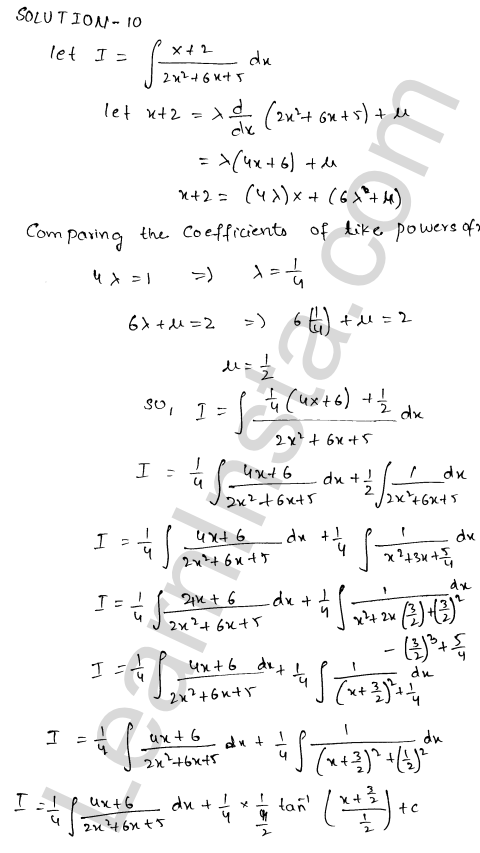 SOLUTION-10
let I = ∫ (x+2)/(2x²+6x+5) dx
let x+2 = λ d/dx (2x²+6x+5) + μ
= λ(4x+6) + μ
x+2 = (4λ)x + (6λ+μ)
Comparing the coefficients of like powers of x
4λ=1 ⇒ λ = 1/4
6λ+μ=2 ⇒ 6(1/4) + μ = 2
μ = 1/2
so, I = ∫ (1/4(4x+6) + 1/2)/(2x²+6x+5) dx
I = 1/4 ∫ (4x+6)/(2x²+6x+5) dx + 1/2 ∫ 1/(2x²+6x+5) dx
I = 1/4 ∫ (4x+6)/(2x²+6x+5) dx + 1/4 ∫ 1/(x²+3x+5/4) dx
I = 1/4 ∫ (4x+6)/(2x²+6x+5) dx + 1/4 ∫ 1/(x²+2x(3/2)+(3/2)² - (3/2)³ + 5/4) dx
I = 1/4 ∫ (4x+6)/(2x²+6x+5) dx + 1/4 ∫ 1/((x+3/2)²+1/4) dx
I = 1/4 ∫ (4x+6)/(2x²+6x+5) dx + 1/4 ∫ 1/((x+3/2)²+(1/2)²) dx
I = 1/4 ∫ (4x+6)/(2x²+6x+5) dx + 1/4 × 1/(1/2) tan⁻¹ ((x+3/2)/(1/2)) + c
LearnInsta.com